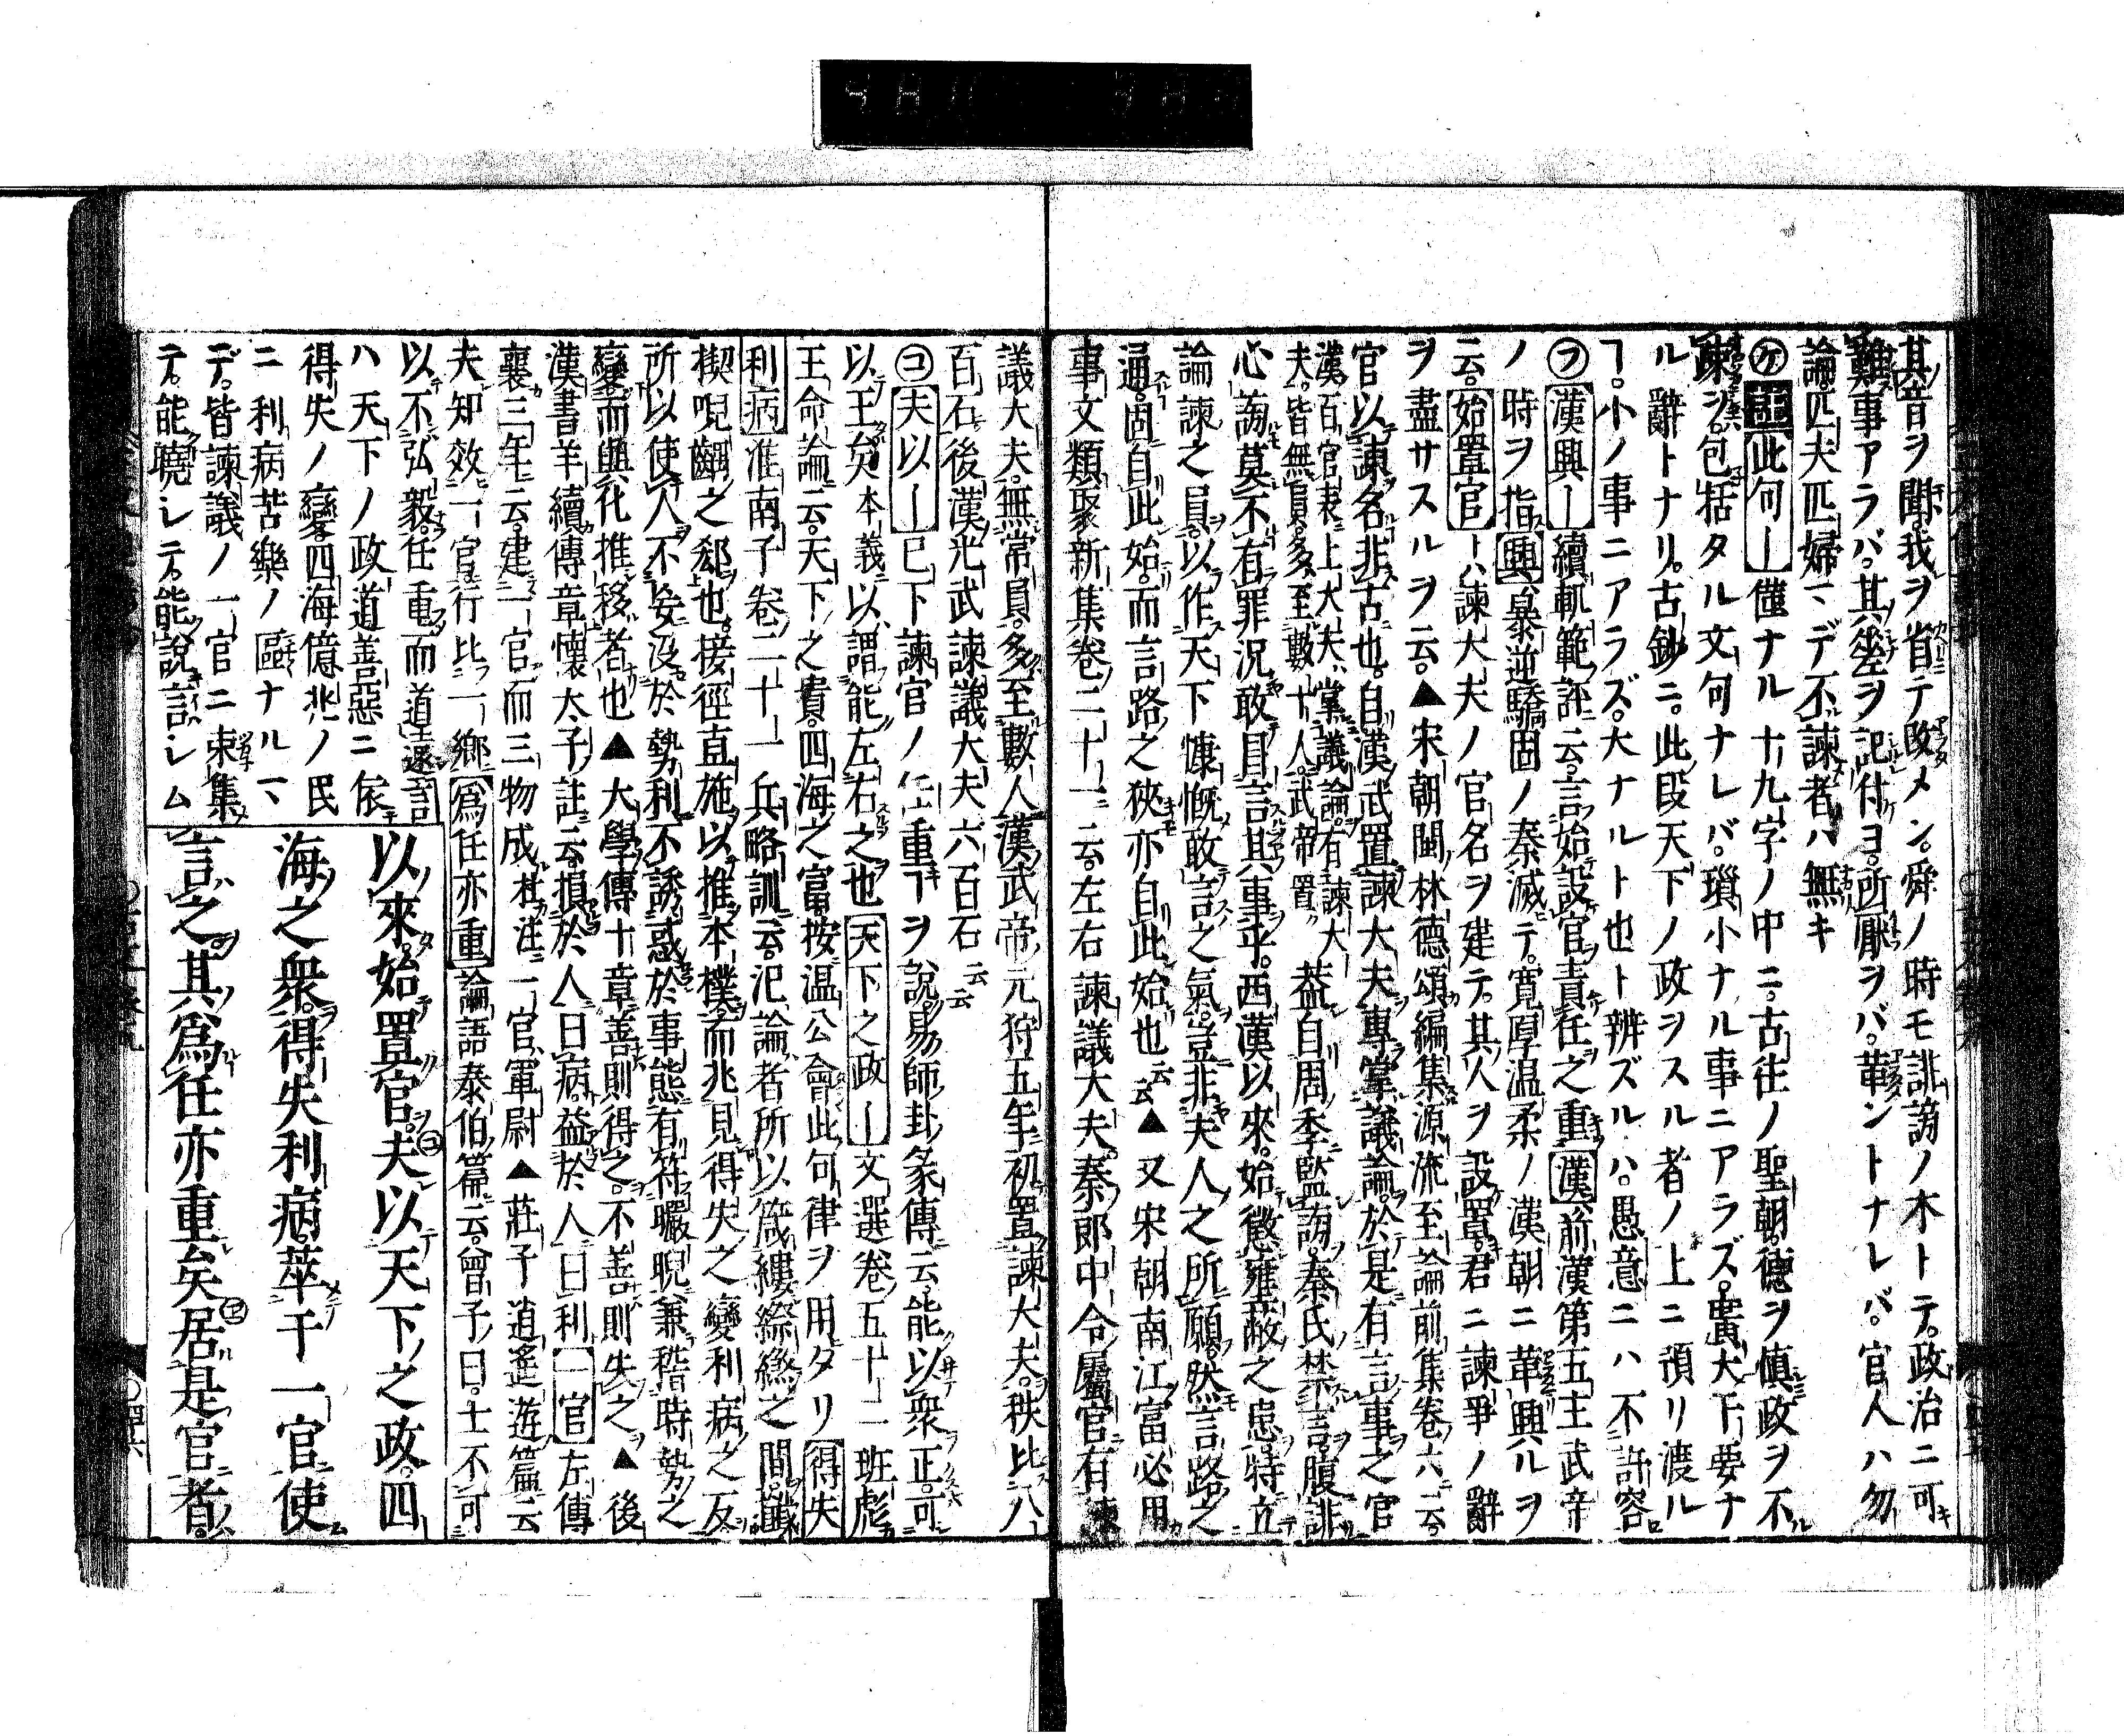 其音ヲ聞、我ヲ省テ改メン。舜ノ時モ誹謗ノ木トテ。政治ニ可キ
難事アラバ。其ヲ記付ヨ。所厭ヲバ。革ントナレバ。官人ハ勿
論。匹夫匹婦マデ不諫者ハ無キ
㋘此句ー僅ナル十九字ノ中ニ。古往ノ聖朝。德ヲ愼政ヲ不
諫シ。包括タル文句ナレバ。瑣小ナル事ニアラズ。實大下要ナ
ル辭トナリ。古鈔ニ。此段天下ノ政ヲスル者ノ上ニ預リ渡ル
ヿ。小ノ事ニアラズ。大ナルト也ト辨ズルハ。愚意ニハ不許容
㋫漢興ー續軌範評云。言始設官責任之重漢前漢第五主武帝
ノ時ヲ指興暴逆驕固ノ秦滅テ。寛厚温柔ノ漢朝ニ革興ルヲ
云。始置官ーハ諫大夫ノ官名ヲ建テ。其人ヲ設置。君ニ諫爭ノ辭
ヲ盡サスルヲ云。▲宋朝閩林德頌編集源流至論前集卷六云。
官以諫名非古也。自漢武置諫大夫專掌議論。於是有言事之官
漢百官表上大夫掌議論。有諫大夫。皆無員。多至數十人。武帝置 葢自周季監謗。秦氏禁言。腹誹
心謗莫不有罪況敢目言其事乎。西漢以來。始懲壅蔽之患特立
論諫之員。以作天下慷慨敢言之氣。豈非夫人之所願。然言路之
通。固自此始。而言路之狹亦自此始也云云▲又宋朝南江富必用
事文類聚新集卷二十一云。左右諫議大夫。秦郎中令屬官有諫
議大夫。無常員。多至數人漢武帝元狩五年初置諫大夫。秩比八
百石後漢光武諫議大夫六百石云云
㋙夫以ー已下諫官ノ任重ヿヲ說易師卦彖傳云能以衆正。可
以王矣本義以謂能左右之也天下之政ー文選卷五十二班彪
王命論云。天下之貴。四海之富按温公會此句律ヲ用タリ得失
利病淮南子卷二十一兵略訓云。氾論者所以箴縷縩繺之間。㰇
楔唲齵之郄也。接徑直施以推本樸。而兆見得失之變利病之反
所以使人不妄沒於勢利不誘惑於事態有符曮晲兼稽時勢之
變而與化推移者也▲大學傳十章善則得之。不善則失之▲後
漢書羊續傳章懷太子註云。損於人曰病益於人曰利一官左傳
襄三年云。建一官而三物成杜注一官軍尉▲莊子逍遙遊篇云
夫知效一官行比一鄉爲任亦重論語泰伯篇云。曾子曰。士不可
以不弘毅。任重而道遠言
ハ天下ノ政道善惡ニ依
得失ノ變。四海億兆ノ民
ニ利病苦樂ノ區ナルマ
デ。皆諫議ノ一官ニ束集
テ。能曉レテ。能說言レム
以來。始置官。㋙夫以天下之政。四
海之衆。得失利病。萃于一官使
言之。其爲任亦重矣㋓居是官者。